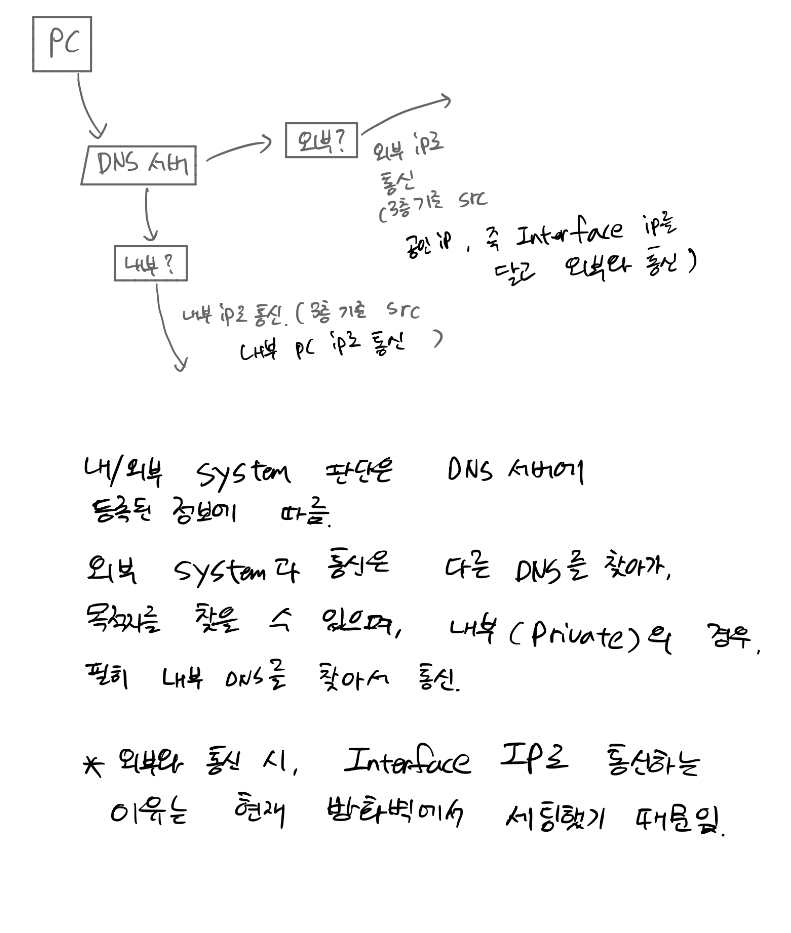 PC
DNS 서버
외부?
외부 ip로
통신
(3층 기준 src
공인 ip, 즉 Interface ip를
달고 외부와 통신)
내부?
내부 ip로 통신. (3층 기준 src
내부 PC ip로 통신)
내/외부 system 판단은 DNS 서버에
등록된 정보에 따름.
외부 system과 통신은 다른 DNS를 찾아가,
목적지를 찾을 수 있으며, 내부(Private)의 경우,
필히 내부 DNS를 찾아서 통신.
* 외부와 통신 시, Interface IP로 통신하는
이유는 현재 방화벽에서 세팅했기 때문임.